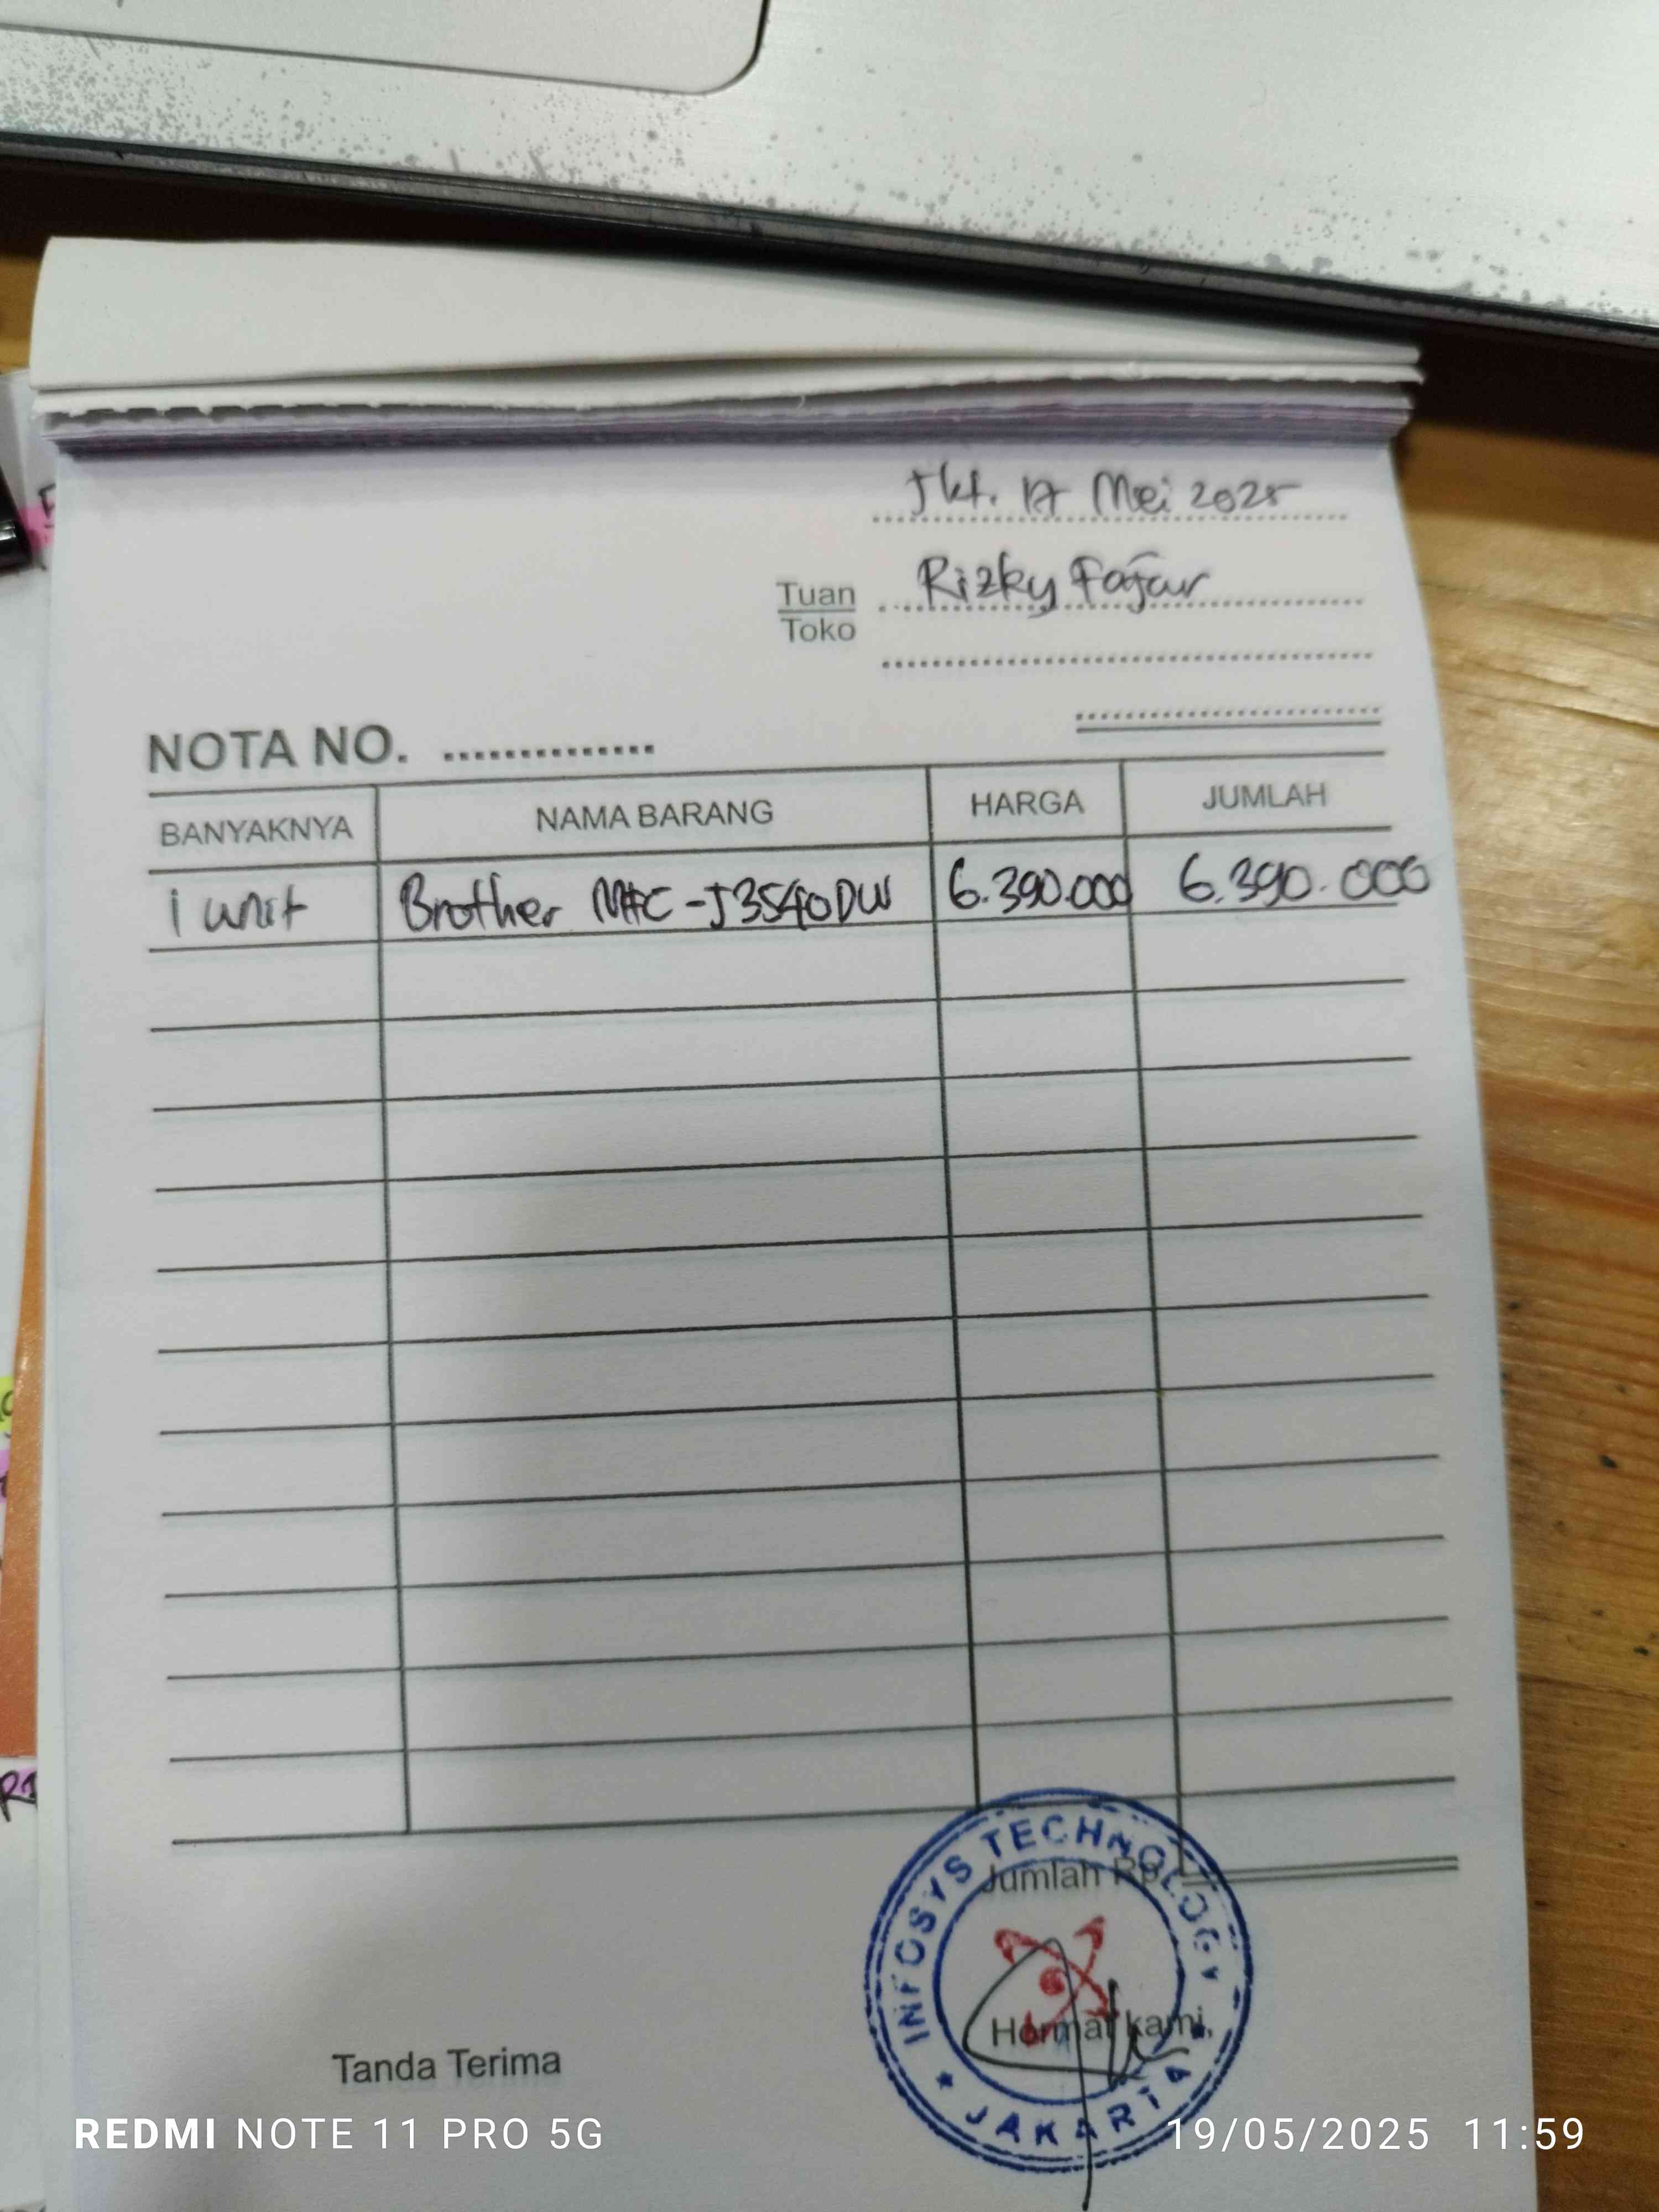 Jkt. 17 Mei 2025
Tuan Rizky Fajar
Toko
NOTA NO. ..............
BANYAKNYA NAMA BARANG HARGA JUMLAH
1 unit Brother MFC-J3540DW 6.390.000 6.390.000
Jumlah Rp.
INFOSYS TECHNOLOGY
JAKARTA
Hormat kami,
Tanda Terima
REDMI NOTE 11 PRO 5G
19/05/2025 11:59